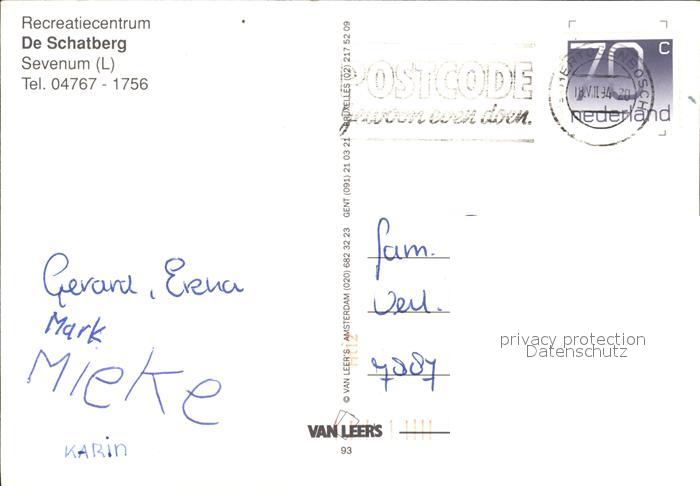 Recreatiecentrum
De Schatberg
Sevenum (L)
Tel. 04767 - 1756
POSTCODE
gewoon even doen.
70 c
nederland
Gerard, Erna
Mark
Mieke
KARin
© VAN LEER'S AMSTERDAM (020) 682 32 23 GENT (091) 21 03 21 BRUXELLES (02) 217 52 09
fam.
7887
privacy protection
Datenschutz
VAN LEER'S
93